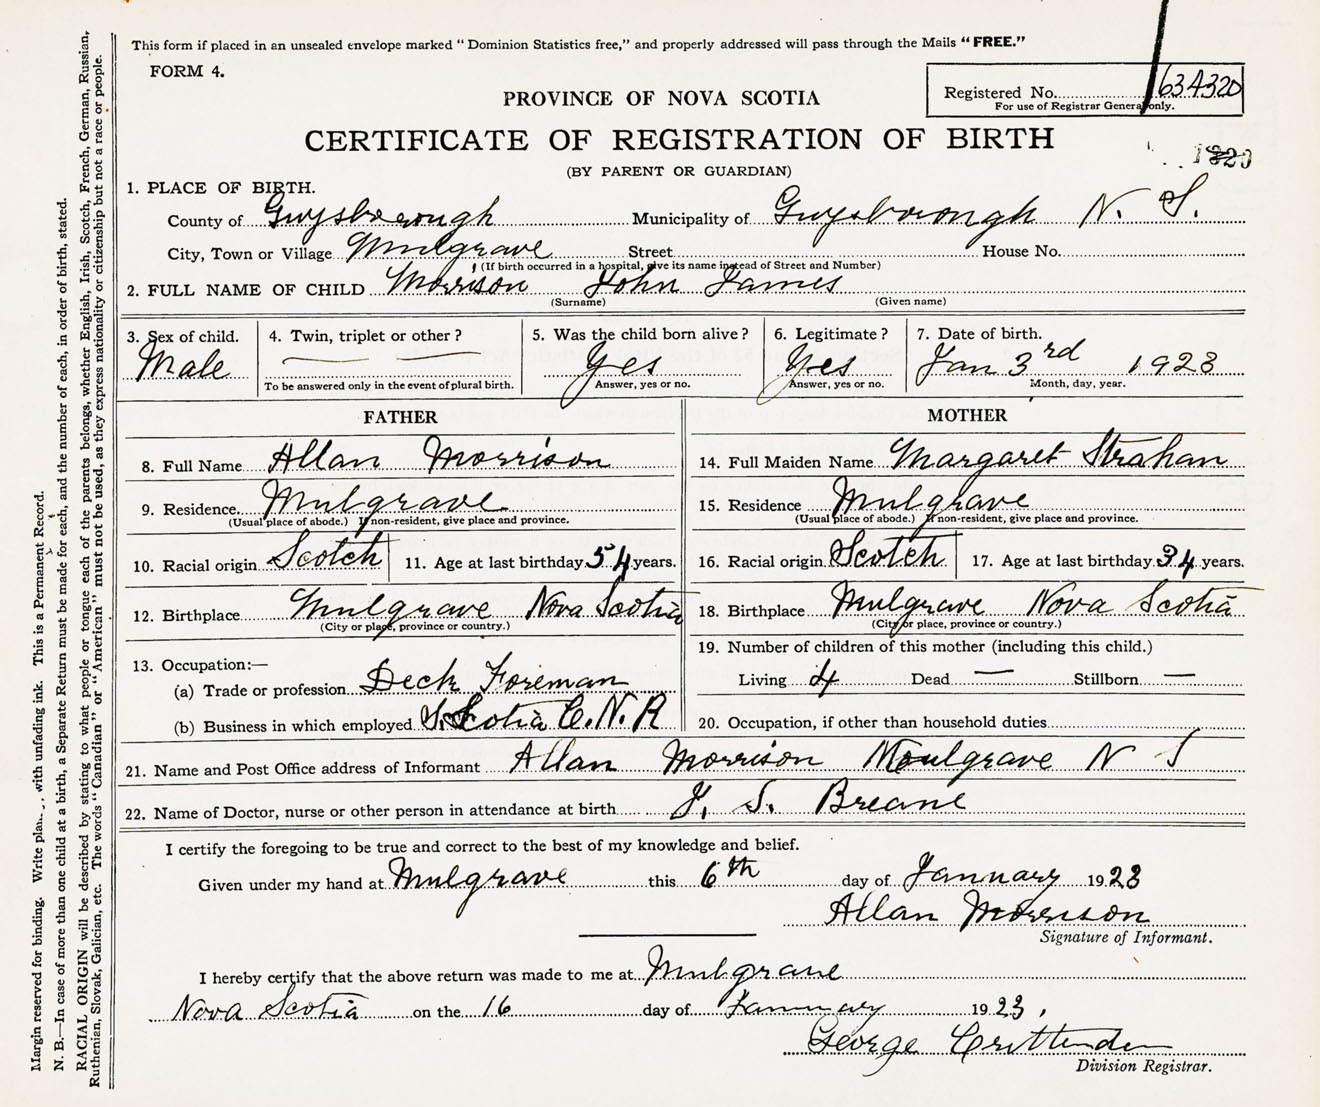 This form if placed in an unsealed envelope marked "Dominion Statistics free," and properly addressed will pass through the Mails "FREE."
FORM 4.
Registered No. 634320
For use of Registrar General only.
PROVINCE OF NOVA SCOTIA
CERTIFICATE OF REGISTRATION OF BIRTH
(BY PARENT OR GUARDIAN)
1. PLACE OF BIRTH.
County of Guysborough Municipality of Guysborough N. S.
City, Town or Village Mulgrave Street House No.
(If birth occurred in a hospital, give its name instead of Street and Number)
2. FULL NAME OF CHILD Morrison John James
(Surname) (Given name)
3. Sex of child. Male
4. Twin, triplet or other ?
To be answered only in the event of plural birth.
5. Was the child born alive ? Yes
Answer, yes or no.
6. Legitimate ? Yes
Answer, yes or no.
7. Date of birth. Jan 3rd 1923
Month, day, year.
FATHER
8. Full Name Allan Morrison
9. Residence Mulgrave
(Usual place of abode.) If non-resident, give place and province.
10. Racial origin Scotch 11. Age at last birthday 54 years.
12. Birthplace Mulgrave Nova Scotia
(City or place, province or country.)
13. Occupation:—
(a) Trade or profession Deck Foreman
(b) Business in which employed S.Scotia C.N.R
MOTHER
14. Full Maiden Name Margaret Strahan
15. Residence Mulgrave
(Usual place of abode.) If non-resident, give place and province.
16. Racial origin Scotch 17. Age at last birthday 34 years.
18. Birthplace Mulgrave Nova Scotia
(City or place, province or country.)
19. Number of children of this mother (including this child.)
Living 4 Dead — Stillborn —
20. Occupation, if other than household duties
21. Name and Post Office address of Informant Allan Morrison Moulgrave N S
22. Name of Doctor, nurse or other person in attendance at birth J. S. Breane
I certify the foregoing to be true and correct to the best of my knowledge and belief.
Given under my hand at Mulgrave this 6th day of January 1923
Allan Morrison
Signature of Informant.
I hereby certify that the above return was made to me at Mulgrave
Nova Scotia on the 16 day of January 1923.
George Crittenden
Division Registrar.
Margin reserved for binding. Write with unfading ink. This is a Permanent Record.
N. B.—In case of more than one child at a birth, a Separate Return must be made for each, and the number of each, in order of birth, stated.
RACIAL ORIGIN will be described by stating to what people or tongue each of the parents belongs, whether English, Irish, Scotch, French, German, Russian,
Ruthenian, Slovak, Galician, etc. The words "Canadian" or "American" must not be used, as they express nationality or citizenship but not a race or people.